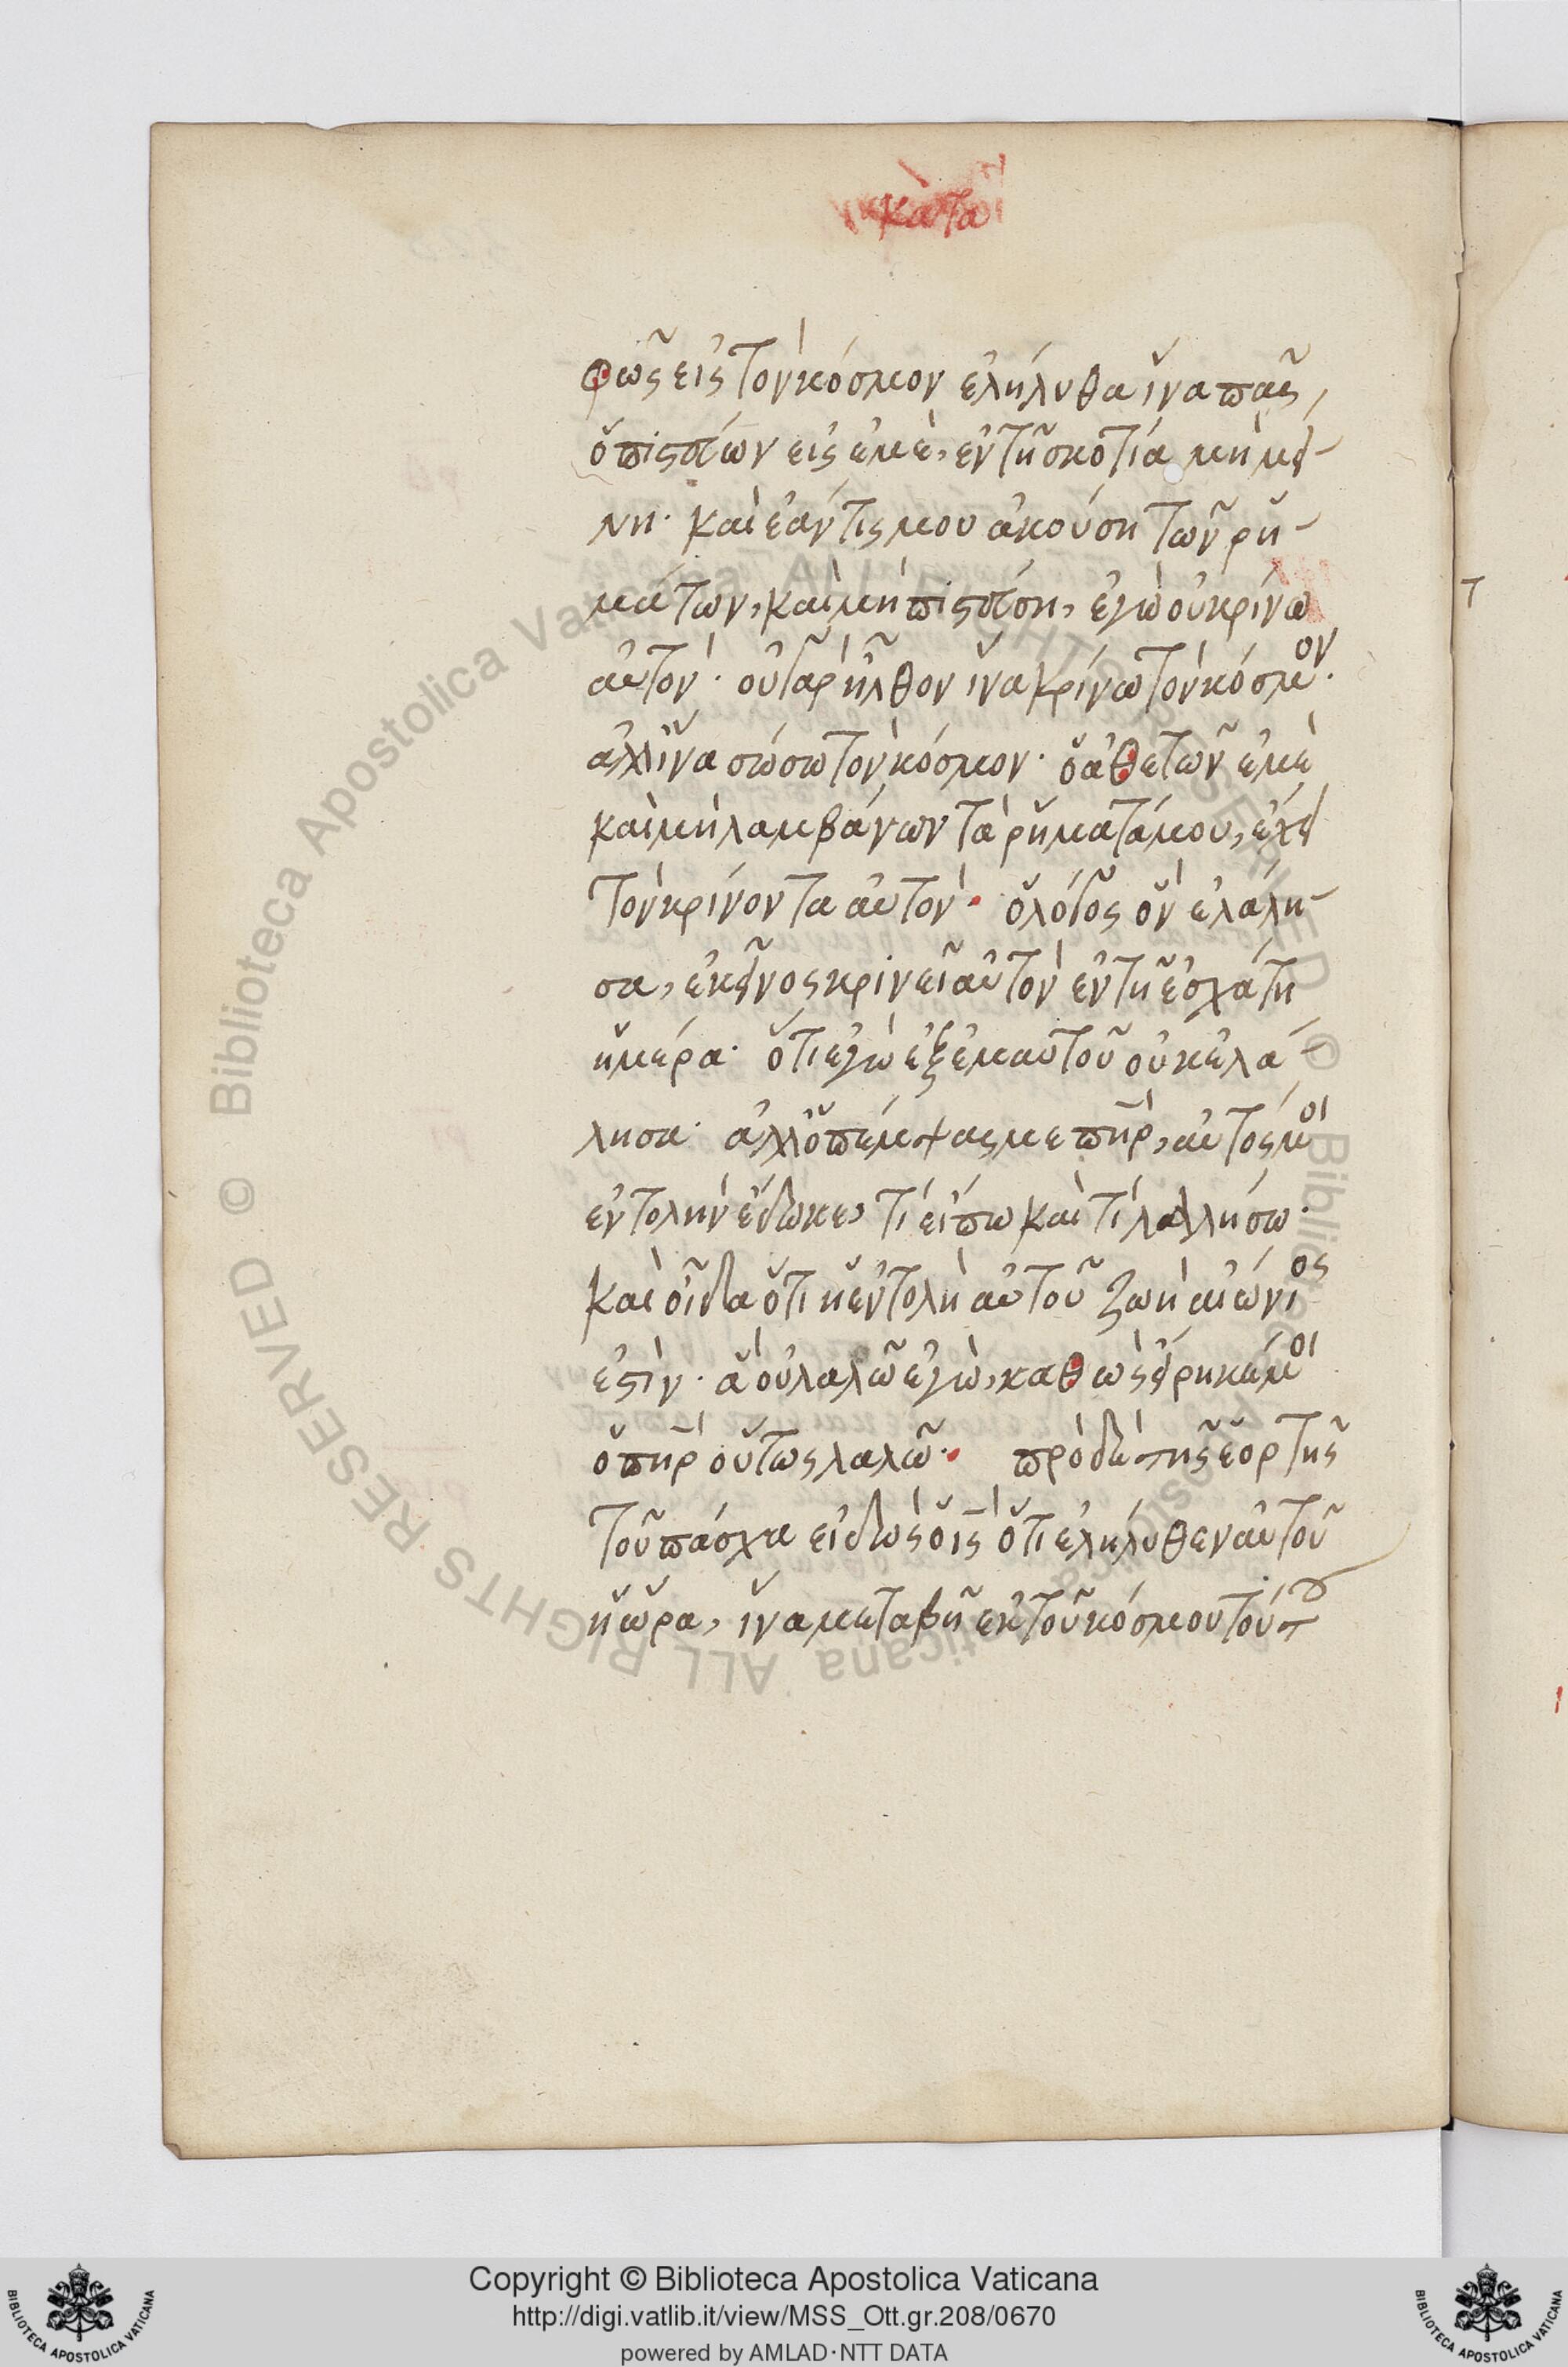 κατα
φῶς εἰς τὸν κόσμον ἐλήλυθα ἵνα πᾶς,
ὁ πιστεύων εἰς ἐμὲ, ἐν τῆ σκοτία μὴ μεί-
νη· καὶ ἐάν τις μου ἀκούση τῶν ρη-
μάτων, καὶ μὴ πιστεύση, ἐγὼ οὐ κρίνω
αὐτὸν· οὐ γὰρ ἦλθον ἵνα κρίνω τὸν κόσμον·
ἀλλ' ἵνα σώσω τὸν κόσμον· ὁ ἀθετῶν ἐμὲ
καὶ μὴ λαμβάνων τὰ ρήματά μου, ἔχει
τὸν κρίνοντα αὐτὸν· ὁ λόγος ὃν ἐλάλη-
σα, ἐκεῖνος κρινεῖ αὐτὸν ἐν τῆ ἐσχάτη
ἡμέρα· ὅτι ἐγὼ ἐξ ἐμαυτοῦ οὐκ ἐλά-
λησα· ἀλλ' ὁ πέμψας με πηρ, αὐτός μοι
ἐντολὴν ἔδωκε, τί εἴπω καὶ τί λαλλήσω·
καὶ οἶδα ὅτι ἡ ἐντολὴ αὐτοῦ ζωὴ αἰώνιος
ἐστὶν· ἃ οὖ λαλῶ ἐγὼ, καθὼς εἴρηκέ μοι
ὁ πηρ οὕτως λαλῶ· πρὸ δὲ τῆς ἑορτῆς
τοῦ πάσχα εἰδὼς ὁ ις ὅτι ἐλήλυθεν αὐτοῦ
ἡ ὥρα, ἵνα μεταβῆ ἐκ τοῦ κόσμου τούτου
Copyright © Biblioteca Apostolica Vaticana
http://digi.vatlib.it/view/MSS_Ott.gr.208/0670
powered by AMLAD·NTT DATA
BIBLIOTECA APOSTOLICA VATICANA
BIBLIOTECA APOSTOLICA VATICANA
© Biblioteca Apostolica Vaticana ALL RIGHTS RESERVED © Biblioteca Apostolica Vaticana ALL RIGHTS RESERVED